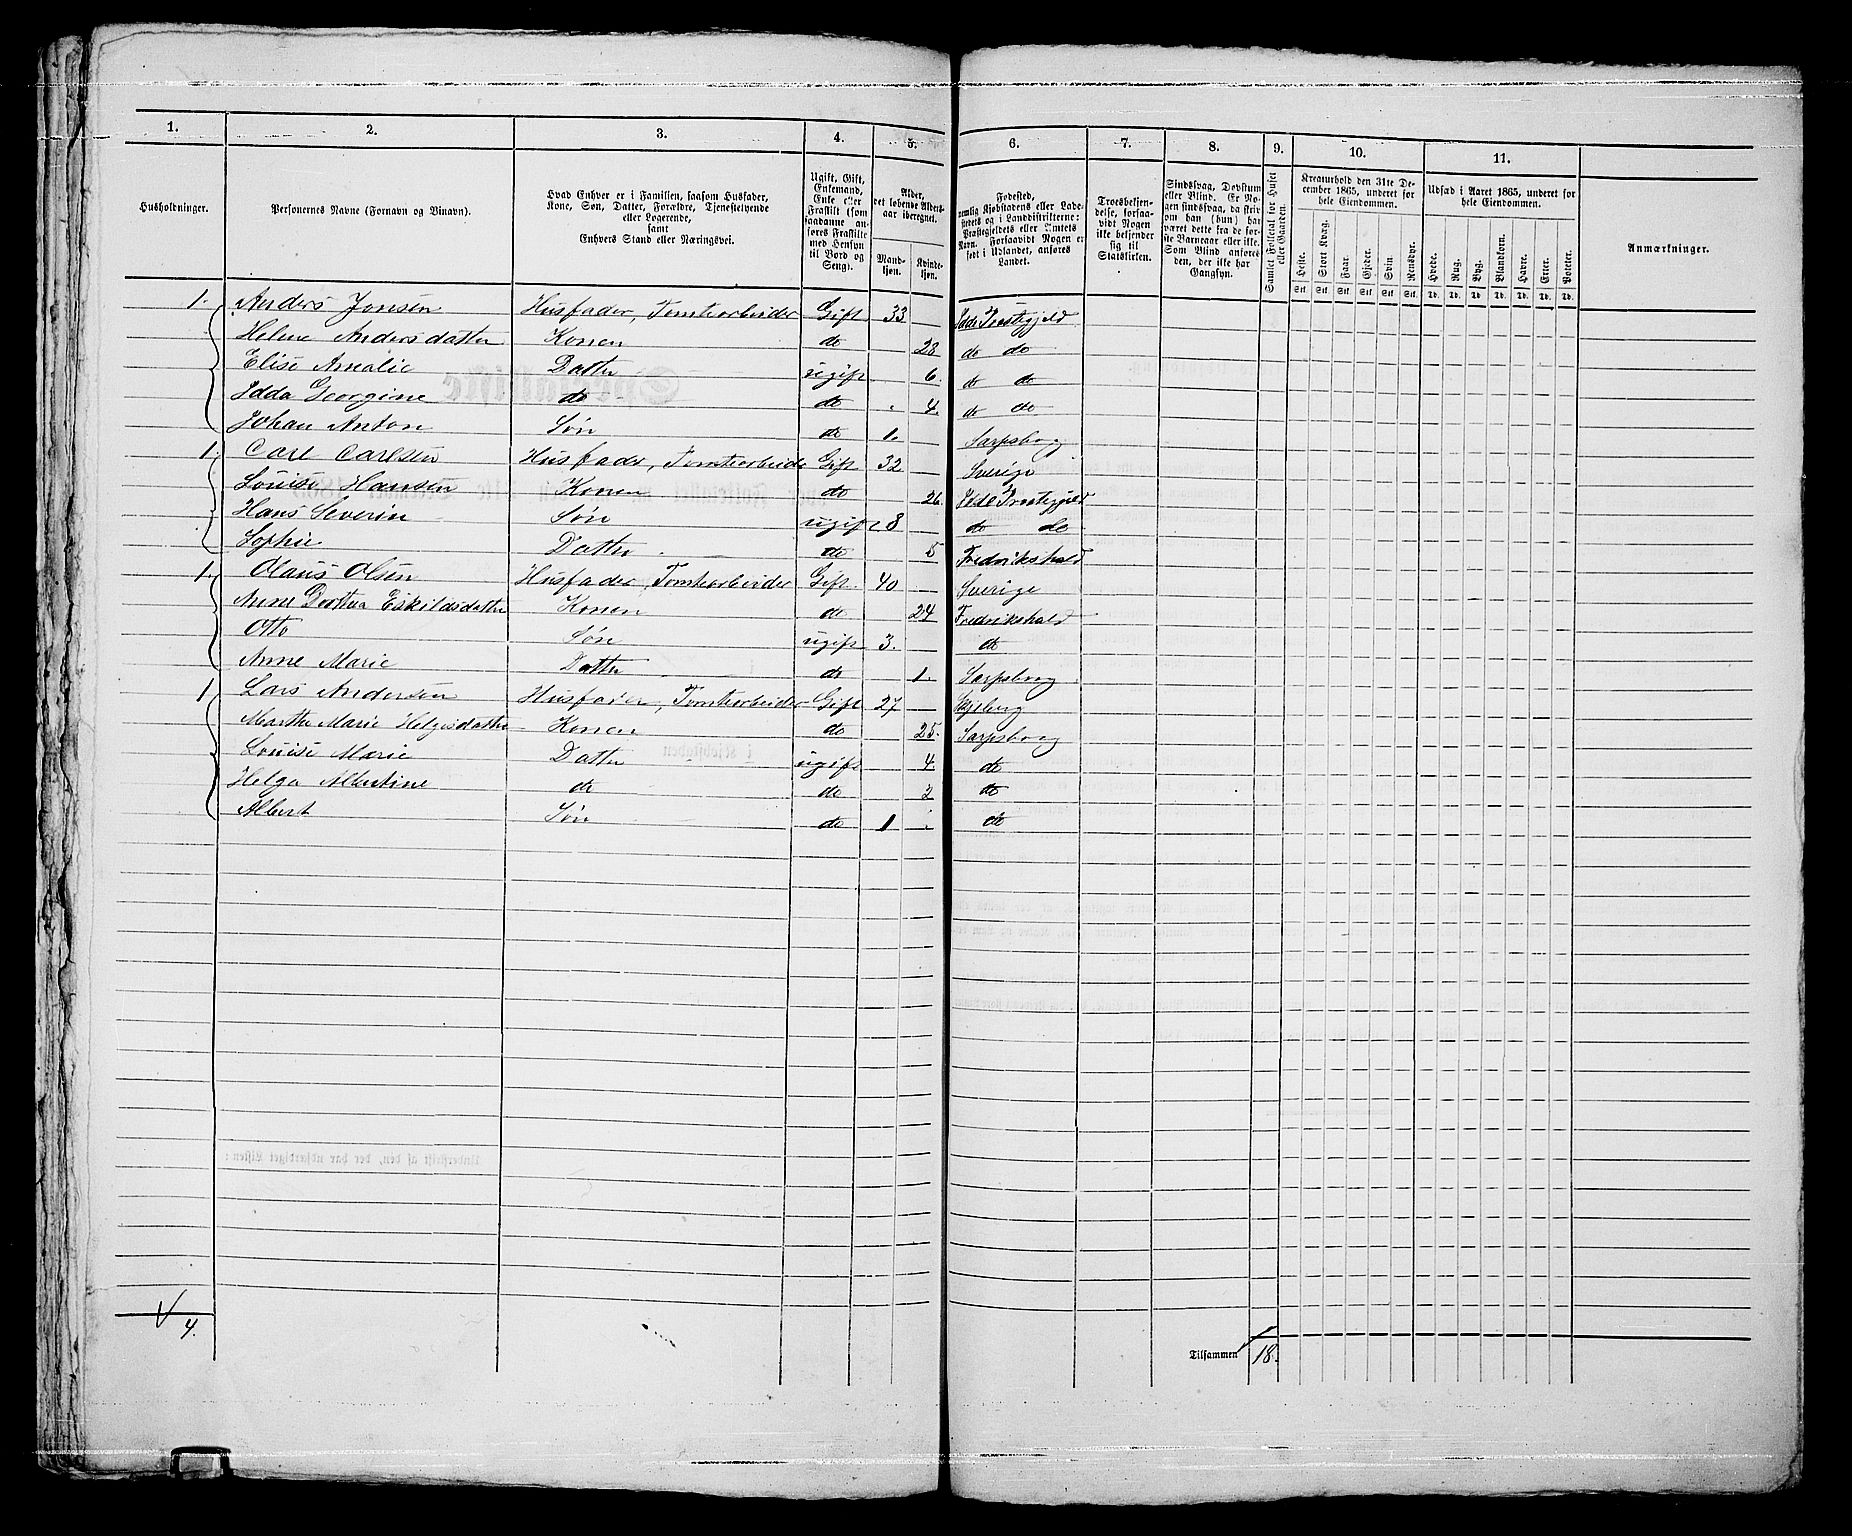 1. 2. 3. 4. 5. 6. 7. 8. 9. 10. 11.
Husholdninger.
Personernes Navne (Fornavn og Binavn).
Hvad Enhver er i Familien, saasom Husfader,
Kone, Søn, Datter, Forældre, Tjenestetyende
eller Logerende,
samt
Enhvers Stand eller Næringsvei.
Ugift, Gift,
Enkemand,
Enke eller
Fraskilt (som
saadanne an-
føres Fraskilte
med Hensyn
til Bord og
Seng).
Alder,
det løbende Alders-
aar iberegnet.
Mand-
kjøn.
Kvinde-
kjøn.
Fødested,
nemlig Kjøbstadens eller Lade-
stedets og i Landdistrikterne:
Præstegjeldets eller Amtets
Navn. Forsaavidt Nogen er
født i Udlandet, anføres
Landet.
Troesbekjen-
delse, forsaa-
vidt Nogen
ikke bekjender
sig til
Statskirken.
Sindssvag, Døvstum
eller Blind. Er No-
gen sindssvag, da skriv
om han (hun) har
været dette fra de før-
ste Barneaar eller ikke.
Som Blind anføres
den, der ikke har
Gangsyn.
Samlet Folketal for Huset
eller Gaarden.
Kreaturhold den 31te De-
cember 1865, underet for
hele Eiendommen.
Heste. Stort Kvæg. Faar. Gjeder. Svin. Rensdyr.
Stk. Stk. Stk. Stk. Stk. Stk.
Udsæd i Aaret 1865, underet for
hele Eiendommen.
Hvede. Rug. Byg. Blandkorn. Havre. Erter. Poteter.
Td. Td. Td. Td. Td. Td. Td.
Anmærkninger.
1. Anders Jonsen Husfader, Tomtearbeider Gift 33 Idde Præstegjeld
Helene Andersdatter Konen do 28 do do
Elise Amalie Datter ugift 6. do do
Idda Georgine do do 4. do do
Johan Anton Søn do 1. Sarpsborg
1. Carl Carlsen Husfader, Tomtearbeide Gift 32 Sverige
Louise Hansen Konen do 26. Idde Præstegjeld
Hans Severin Søn ugift 8 do do
Sophie Datter do 5 Fredrikshald
1. Olaus Olsen Husfader, Tomtearbeider Gift. 40 Sverige
Anne Dorthea Eskildsdatter Konen do 24 Fredrikshald
Otto Søn ugift 3. do
Anne Marie Datter do 1. Sarpsborg
1 Lars Andersen Husfader, Tomtearbeider Gift 27 Skjeberg
Marthe Marie Helgesdatter Konen do 25. Sarpsborg
Louise Marie Datter ugift 4. do
Helga Albertine do do 2 do
Albert Søn do 1 do
4.
Tilsammen 18.